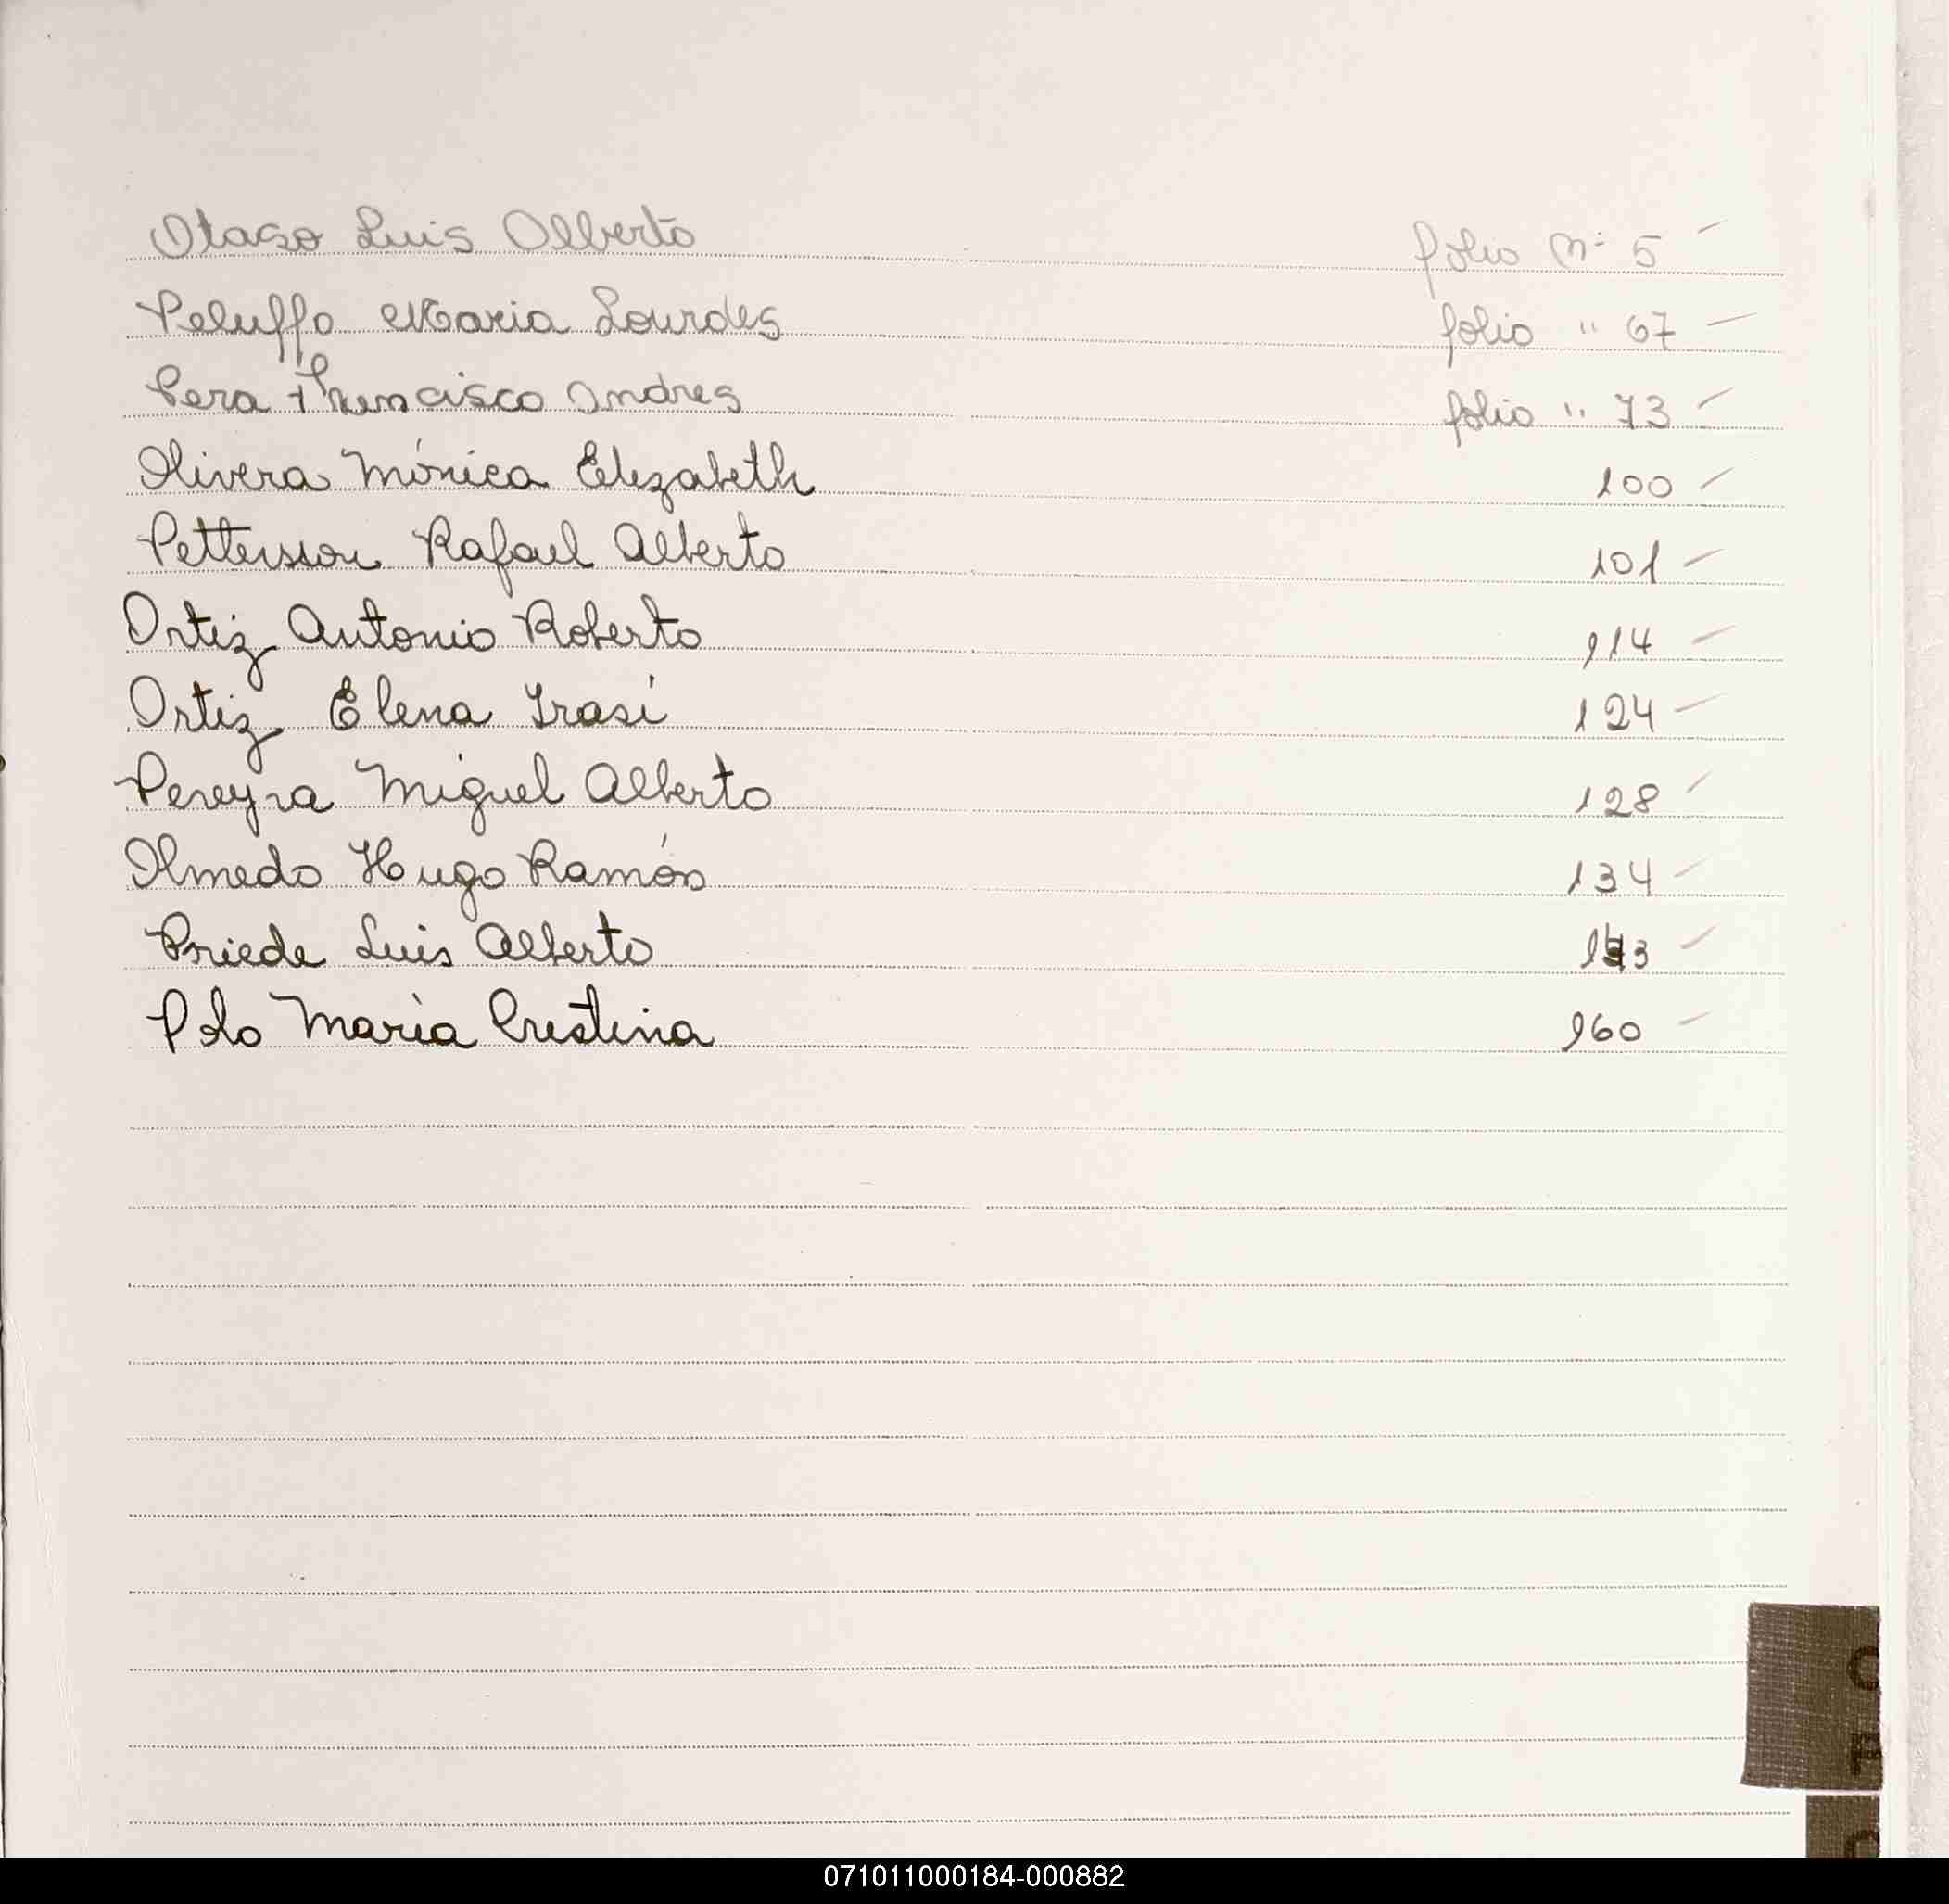 Otaso Luis Alberto folio Nº 5 -
Peluffo Maria Lourdes folio " 67 -
Pera Francisco Andres folio " 73 -
Olivera Mónica Elizabeth 100 -
Petterson Rafael Alberto 101 -
Ortiz Antonio Roberto 114 -
Ortiz Elena Irasi 124 -
Pereyra Miguel Alberto 128 -
Olmedo Hugo Ramón 134 -
Priede Luis Alberto -
Polo Maria Cristina 160 -
O
P
071011000184-000882